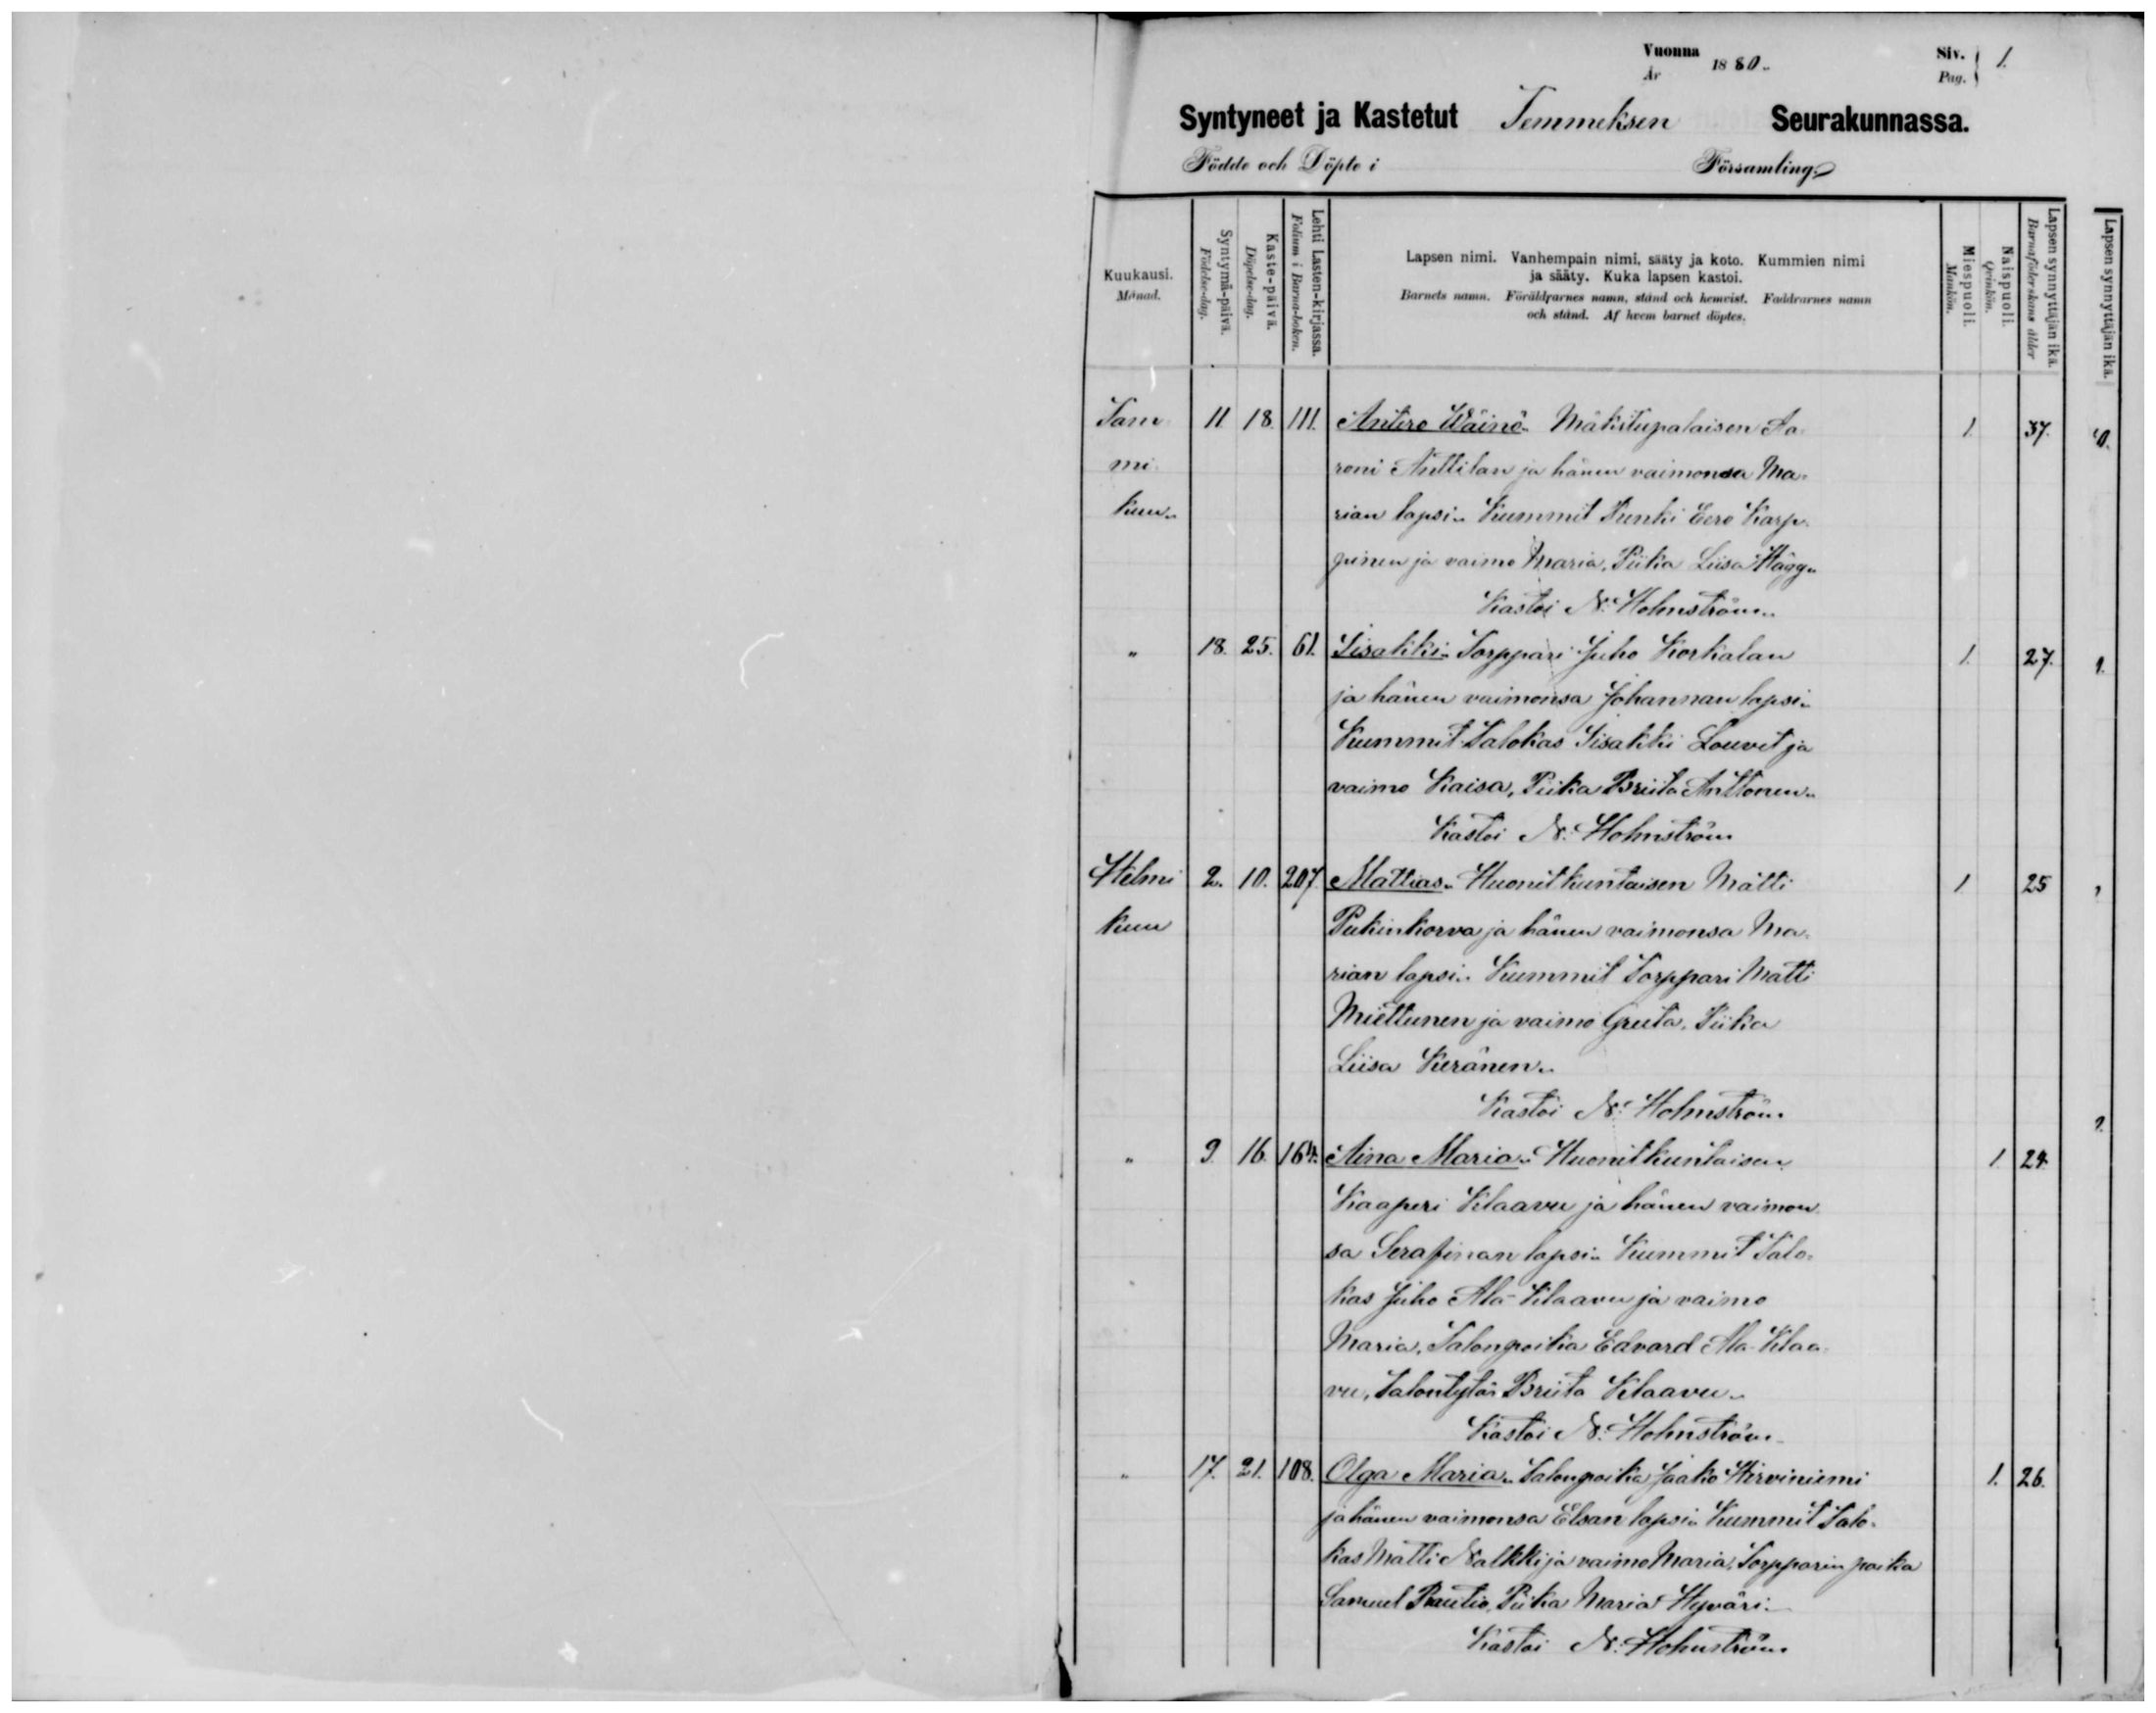 Vuonna 1880.. Siv. 1.
År Pag.
Syntyneet ja Kastetut Temmeksen Seurakunnassa.
Födde och Döpte i Församling.
Kuukausi.
Månad.
Syntymä-päivä.
Födelse-dag.
Kaste-päivä.
Döpelse-dag.
Lehti Lasten-kirjassa.
Folium i Barna-boken.
Lapsen nimi. Vanhempain nimi, sääty ja koto. Kummien nimi
ja sääty. Kuka lapsen kastoi.
Barnets namn. Föräldrarnes namn, stånd och hemvist. Faddrarnes namn
och stånd. Af hvem barnet döptes.
Miespuoli.
Mankön.
Naispuoli.
Qvinkön.
Lapsen synnyttäjän ikä.
Barnaföderskans ålder
Lapsen synnyttäjän ikä.
Tam 11. 18. 111. Antero Wäinö. Mäkitupalaisen Aa 1. 37.
mi roni Anttilan ja hänen vaimonsa Ma-
kuu.. rian lapsi.. Kummit Renki Eero Karp-
pinen ja vaimo Maria, Piika Liisa Hägg..
Kastoi N: Holmström..
" 18. 25. 61. Iisakki.. Torppari Juho Korkalan 1. 27.
ja hänen vaimonsa Johannan lapsi..
Kummit Talokas Iisakki Louvet ja
vaimo Kaisa, Piika Briita Anttonen..
Kastoi N: Holmström
Helmi 2. 10. 207. Mattias.. Huonitkuntaisen Matti 1. 25
kuu Pukinkorva ja hänen vaimonsa Ma-
rian lapsi.. Kummit Torppari Matti
Miettunen ja vaimo Greeta, Piika
Liisa Keränen..
Kastoi N: Holmström
" 9. 16. 164. Aina Maria.. Huonitkuntaisen 1. 24.
Kaaperi Klaavu ja hänen vaimon
sa Serafinan lapsi.. Kummit Talo-
kas Juho Ala-Klaavu ja vaimo
Maria, Talonpoika Edvard Ala-Klaa
vu, Talontytär Briita Klaavu..
Kastoi N: Holmström
" 17. 21. 108. Olga Maria.. Talonpoika Jaako Hirviniemi 1. 26.
ja hänen vaimonsa Elsan lapsi.. Kummit Talo-
kas Matti Nalkki ja vaimo Maria, Torpparin poika
Samuel Rautio, Piika Maria Hyväri..
Kastoi N: Holmström